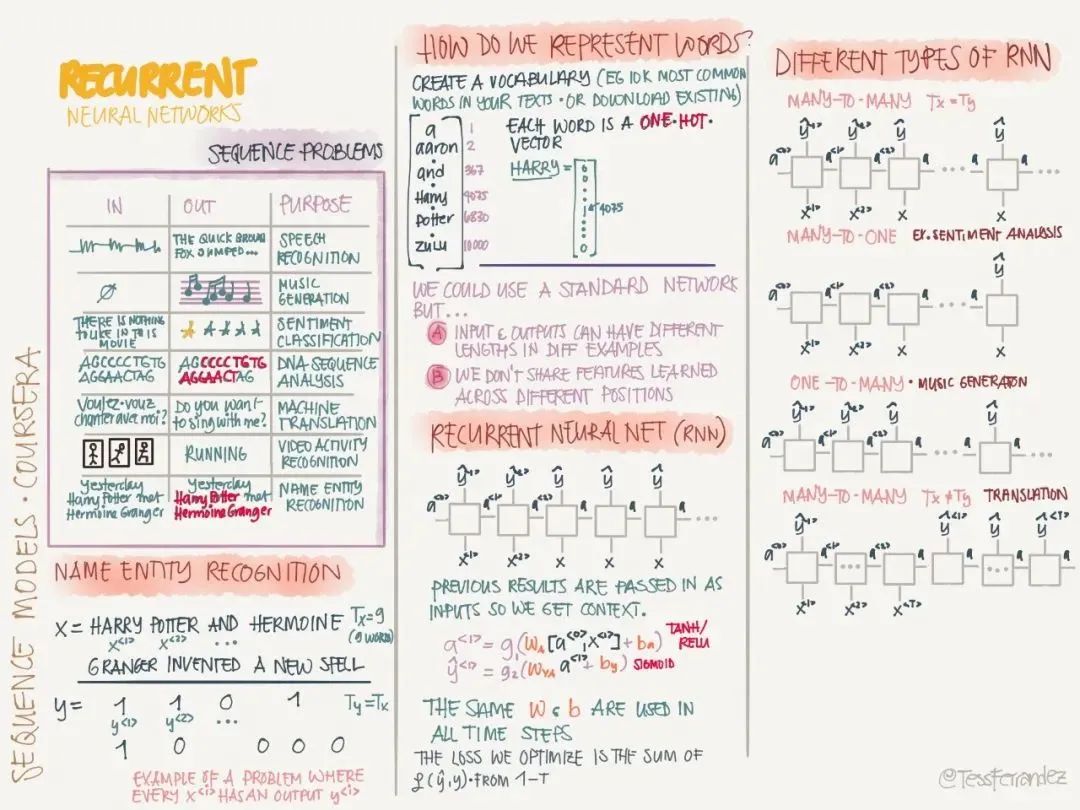 RECURRENT
NEURAL NETWORKS
SEQUENCE PROBLEMS
IN OUT PURPOSE
THE QUICK BROWN
FOX JUMPED...
SPEECH
RECOGNITION
∅
MUSIC
GENERATION
THERE IS NOTHING
TO LIKE IN THIS
MOVIE
SENTIMENT
CLASSIFICATION
AGCCCCTGTG
AGGAACTAG
AGCCCCTGTG
AGGAACTAG
DNA SEQUENCE
ANALYSIS
Voulez-vouz
chanter avec moi?
Do you want
to sing with me?
MACHINE
TRANSLATION
RUNNING
VIDEO ACTIVITY
RECOGNITION
Yesterday
Harry Potter met
Hermoine Granger
Yesterday
Harry Potter met
Hermoine Granger
NAME ENTITY
RECOGNITION
SEQUENCE MODELS · COURSERA
NAME ENTITY RECOGNITION
X = HARRY POTTER AND HERMOINE Tx=9
x<1> x<2> ... (9 WORDS)
GRANGER INVENTED A NEW SPELL
y = 1 1 0 1 Ty=Tx
y<1> y<2> ...
1 0 0 0 0
EXAMPLE OF A PROBLEM WHERE
EVERY X<i> HAS AN OUTPUT y<i>
HOW DO WE REPRESENT WORDS?
CREATE A VOCABULARY (EG 10K MOST COMMON
WORDS IN YOUR TEXTS · OR DOWNLOAD EXISTING)
a 1
aaron 2
and 367
Harry 4075
Potter 6830
zulu 10000
EACH WORD IS A ONE·HOT·
VECTOR
HARRY = 0 0 1 0
4075
WE COULD USE A STANDARD NETWORK
BUT...
A INPUT & OUTPUTS CAN HAVE DIFFERENT
LENGTHS IN DIFF EXAMPLES
B WE DON'T SHARE FEATURES LEARNED
ACROSS DIFFERENT POSITIONS
RECURRENT NEURAL NET (RNN)
ŷ<1> ŷ<2> ŷ ŷ ŷ
a<0> a<1> a<2> a a ...
x<1> x<2> x x x
PREVIOUS RESULTS ARE PASSED IN AS
INPUTS SO WE GET CONTEXT.
a<1> = g₁(Wa[a<0>,x<1>] + ba) TANH/
RELU
ŷ<1> = g₂(Wya a<1> + by) SIGMOID
THE SAME W & b ARE USED IN
ALL TIME STEPS
THE LOSS WE OPTIMIZE IS THE SUM OF
ℒ(ŷ,y)·FROM 1-T
DIFFERENT TYPES OF RNN
MANY-TO-MANY Tx=Ty
ŷ<1> ŷ<2> ŷ ŷ
a<0> a<1> a<2> a ... a ...
x<1> x<2> x x
MANY-TO-ONE EX. SENTIMENT ANALYSIS
ŷ
a<0> a<1> a<2> a ... a
x<1> x<2> x x
ONE-TO-MANY · MUSIC GENERATON
ŷ<1> ŷ<2> ŷ ŷ
a<0> a<1> a<2> a ... a a ...
x
MANY-TO-MANY Tx≠Ty TRANSLATION
ŷ<1> ŷ<1> ŷ ŷ<T>
a<0> a<1> ... a<2> a ... a
x<1> x<2> x<T>
@TessFerrandez